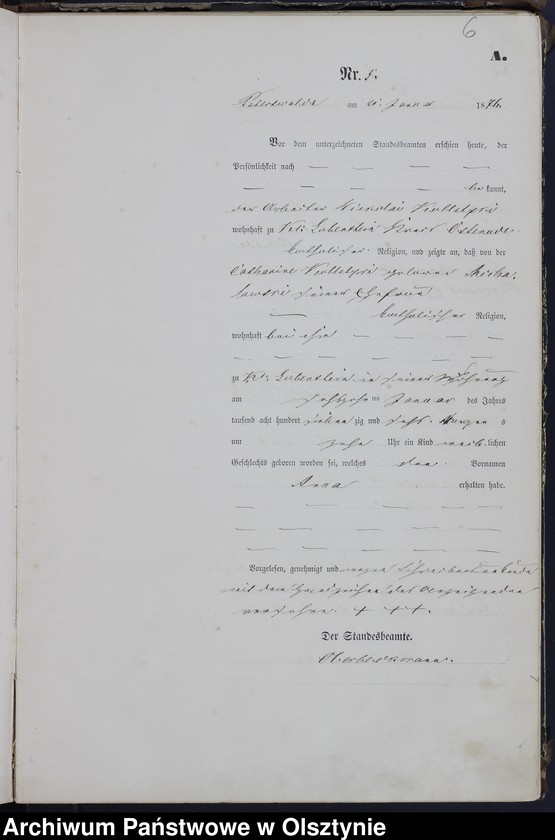 6
A.
Nr. 5.
am Januar 1876.
Vor dem unterzeichneten Standesbeamten erschien heute, der
Persönlichkeit nach — — — —
— — — — — bekannt,
der Arbeiter
wohnhaft zu Kl. Lubenstein Kreis Osterode
katholischer Religion, und zeigte an, daß von der
Catharine geborene Micha-
lowski seiner Ehefrau
— katholischer Religion,
wohnhaft bei ihm — — — —
— — — — — — —
zu Kl. Lubenstein in seiner Wohnung
am ten Januar des Jahres
tausend acht hundert sieben zig und sechs
um zehn Uhr ein Kind weiblichen
Geschlechts geboren worden sei, welches den Vornamen
Anna erhalten habe.
— — — — — —
— — — — — —
— — — — — —
Vorgelesen, genehmigt und wegen Schreibensunkunde
mit dem Handzeichen des Anzeigenden
versehen. + + +.
Der Standesbeamte.
Archiwum Państwowe w Olsztynie